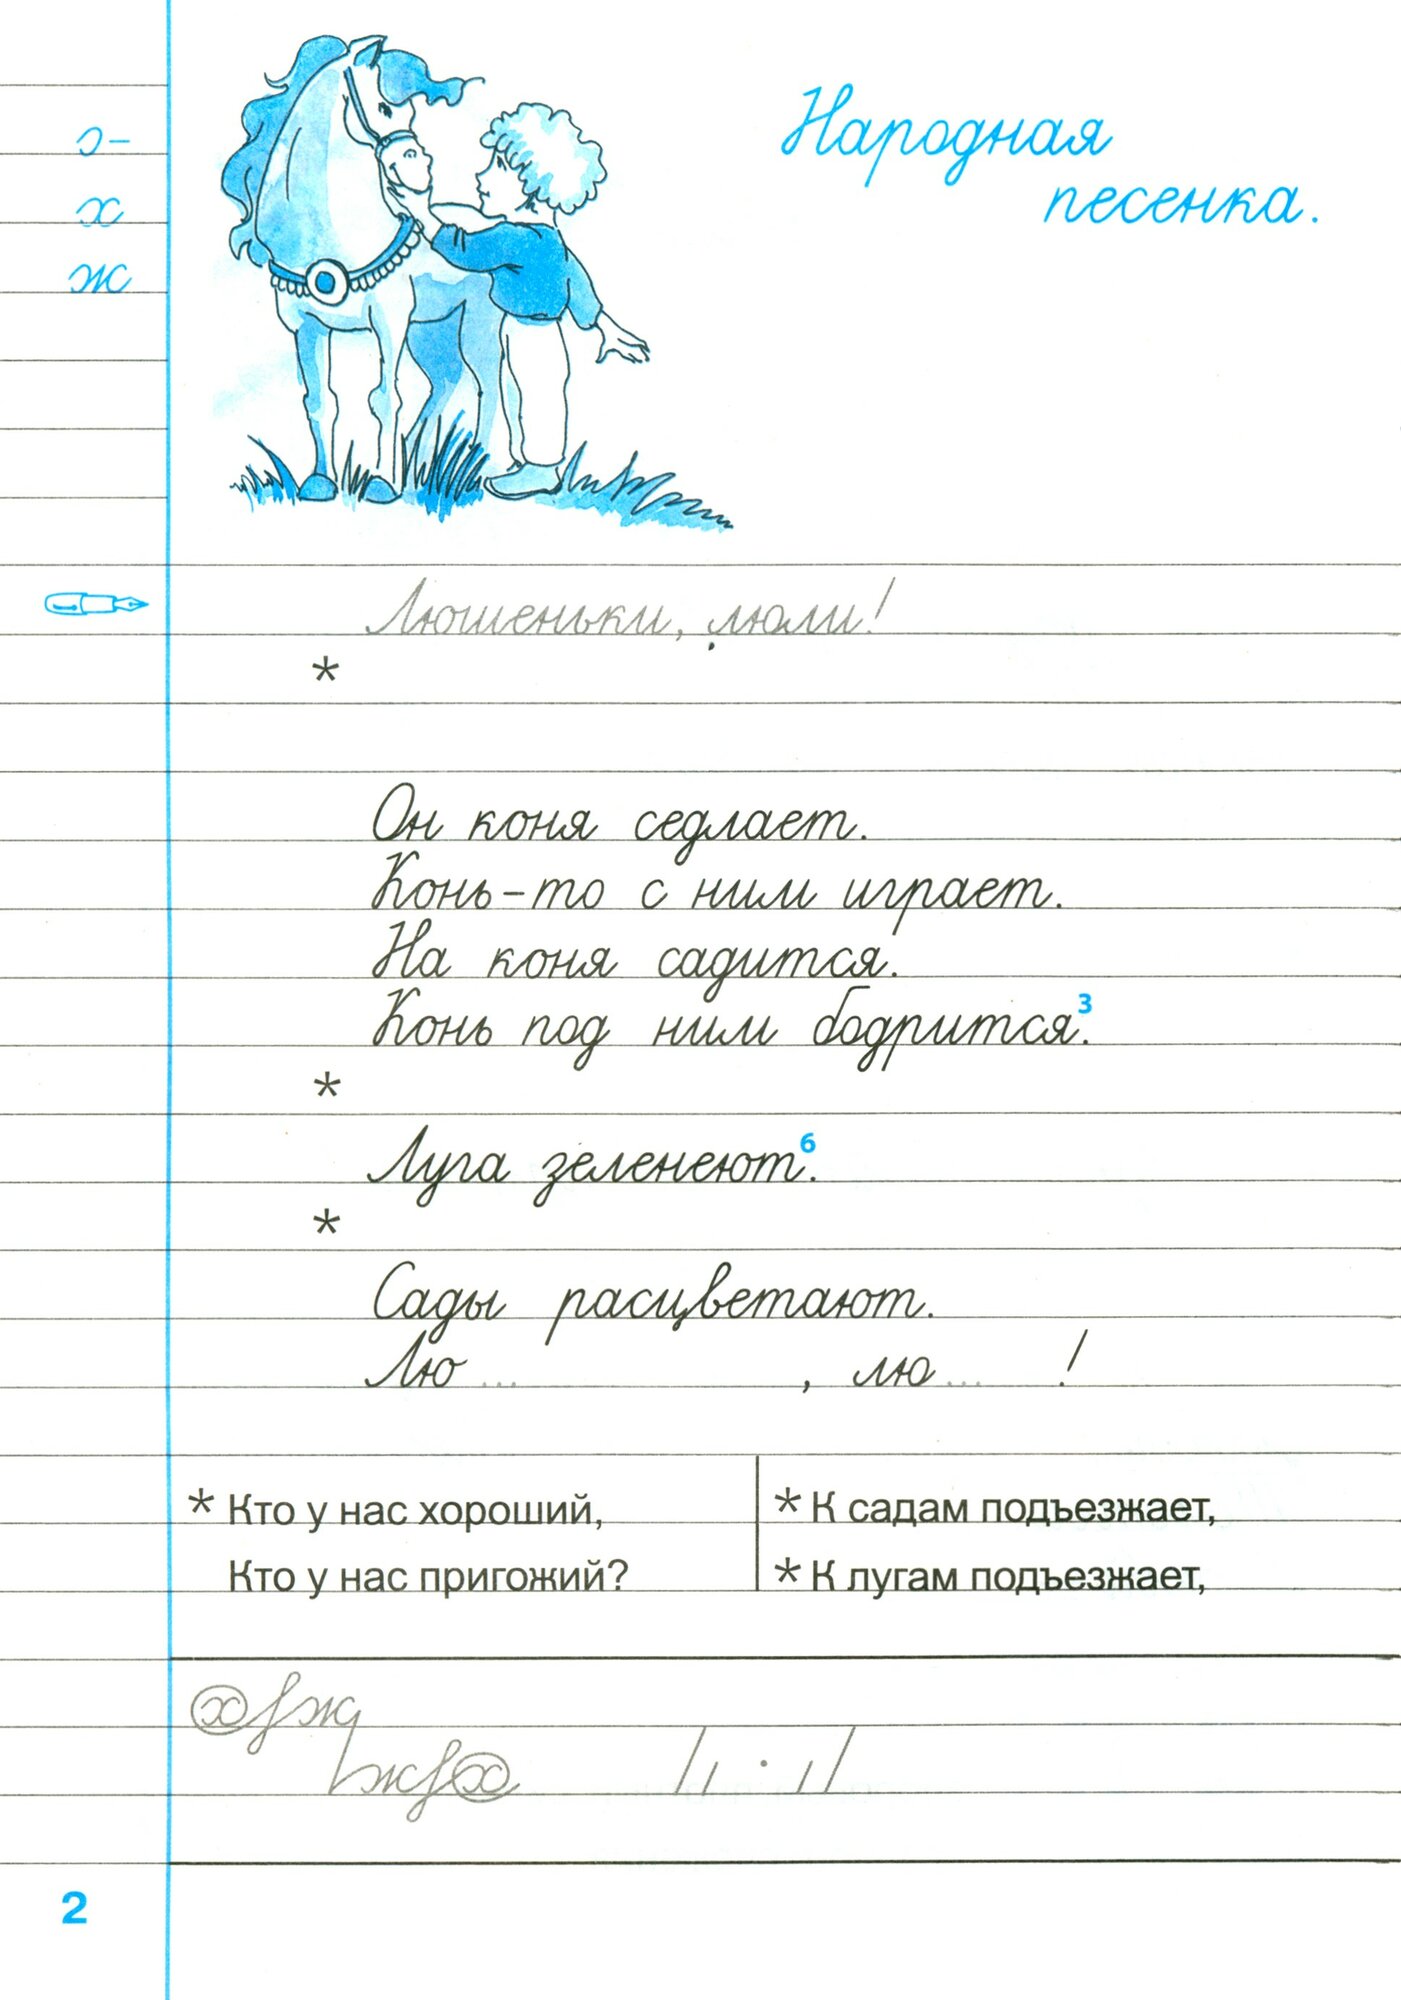 Народная
песенка.
э-
х
ж
Люшеньки, люли!
*
Он коня седлает.
Конь-то с ним играет.
На коня садится.
Конь под ним бодрится³.
*
Луга зеленеют⁶.
*
Сады расцветают.
Лю ... , лю ... !
* Кто у нас хороший,
Кто у нас пригожий?
* К садам подъезжает,
* К лугам подъезжает,
2